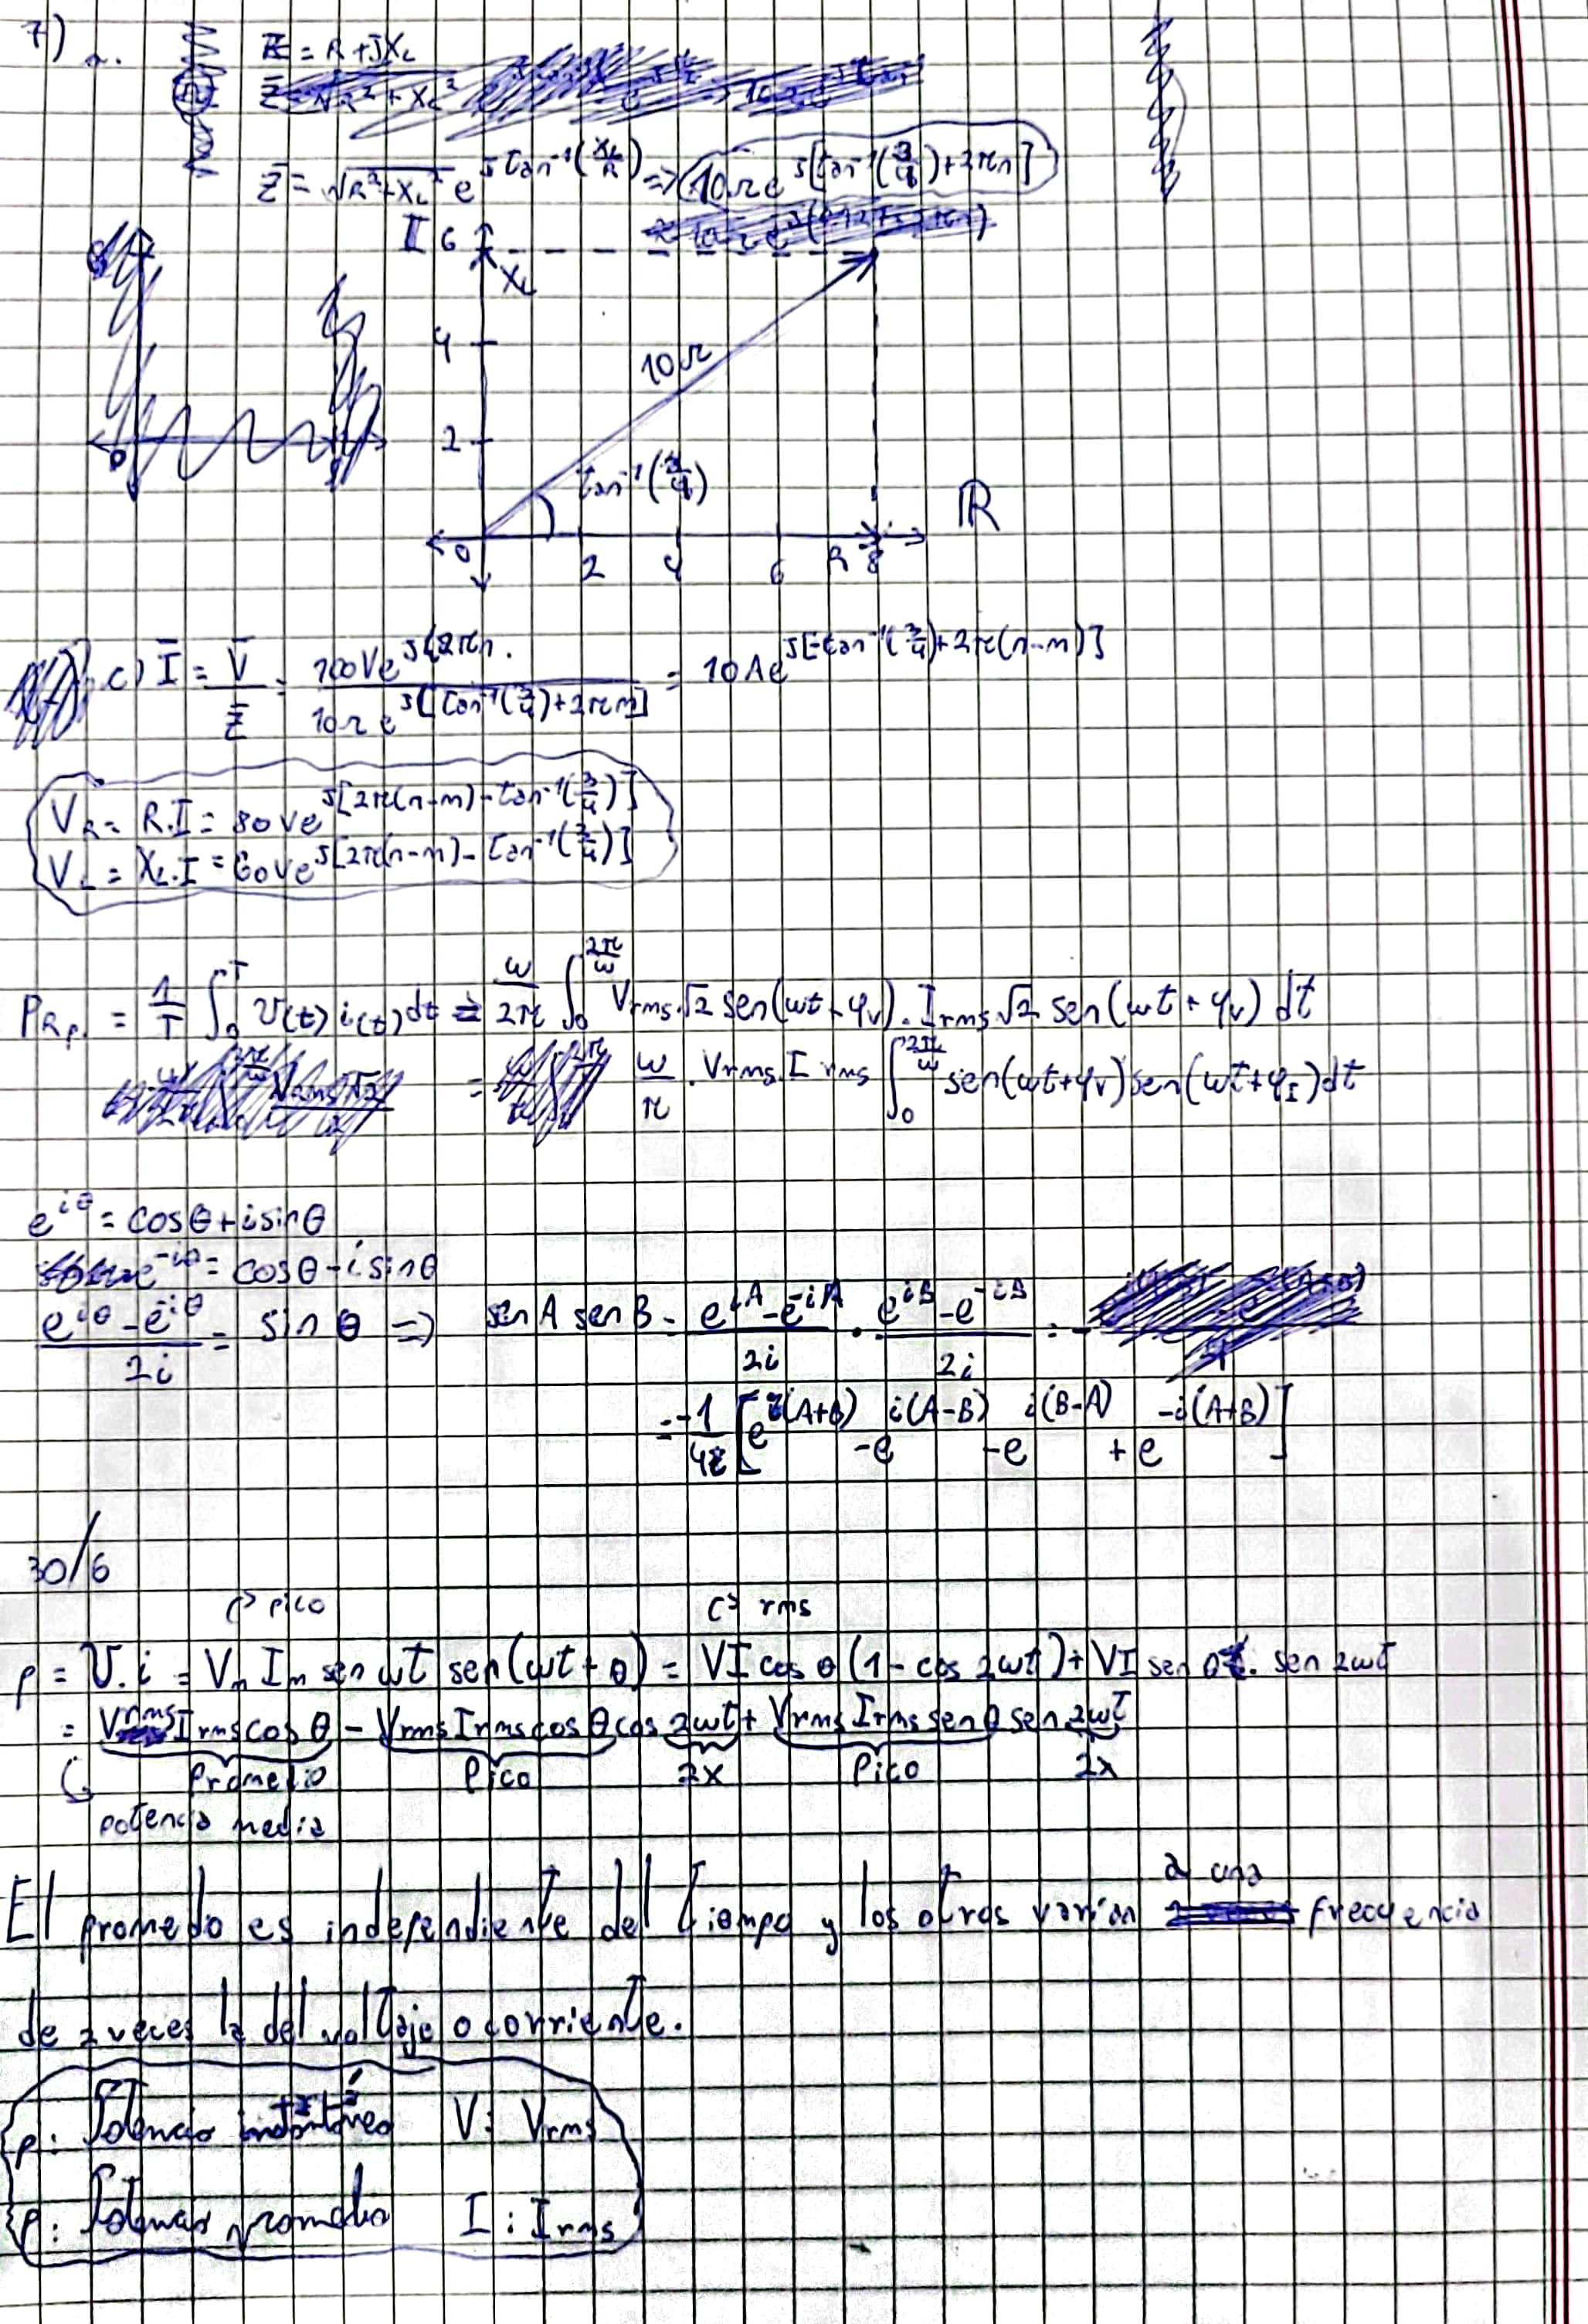 7) a. Z̄ = R + JX_L
Z̄ = √R²+X_L² e^J tan⁻¹(X_L/R) => 10Ω e^J[tan⁻¹(3/4)+2πn]
I 6
X_L
4
10Ω
2
tan⁻¹(3/4)
ℝ
0 2 4 6 R 8
c) Ī = V̄/Z̄ = 100Ve^J2πn / 10Ω e^J[tan⁻¹(3/4)+2πm] = 10Ae^J[-tan⁻¹(3/4)+2π(n-m)]
V_R = R.I = 80Ve^J[2π(n-m)-tan⁻¹(3/4)]
V_L = X_L.I = 60Ve^J[2π(n-m)-tan⁻¹(3/4)]
P_Rp. = 1/T ∫₀^T v(t) i(t) dt = ω/2π ∫₀^(2π/ω) Vrms.√2 sen(ωt+φ_v). Irms√2 sen(ωt+φ_v) dt
= ω/π . Vrms.Irms ∫₀^(2π/ω) sen(ωt+φ_V) sen(ωt+φ_I)dt
e^iθ = cosθ+isinθ
e^-iθ = cosθ-isinθ
(e^iθ - e^-iθ)/2i = sinθ => sen A sen B = (e^iA - e^-iA)/2i . (e^iB - e^-iB)/2i = -
= -1/4 [e^i(A+B) - e^i(A-B) - e^i(B-A) + e^-i(A+B)]
30/6
↱ pico ↱ rms
p = v.i = V_m I_m sen ωt sen(ωt+θ) = VI cos θ (1-cos 2ωt) + VI sen θ . sen 2ωt
= Vrms Irms cos θ - Vrms Irms cos θ cos 2ωt + Vrms Irms sen θ sen 2ωt
Promedio Pico 2x Pico 2x
potencia media
El promedio es independiente del tiempo y los otros varían a una frecuencia
de 2 veces la del voltaje o corriente.
p: Potencia instantánea V: Vrms
P: Potencia promedio I: Irms